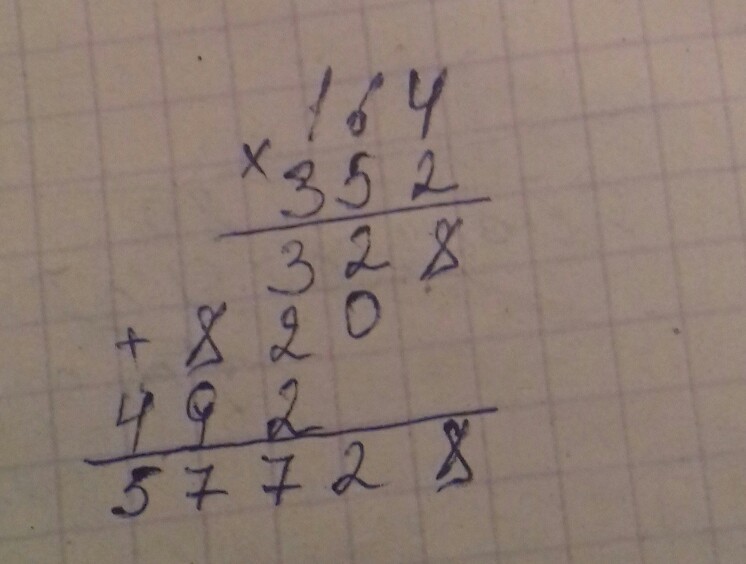 164
× 352
328
+ 820
492
57728